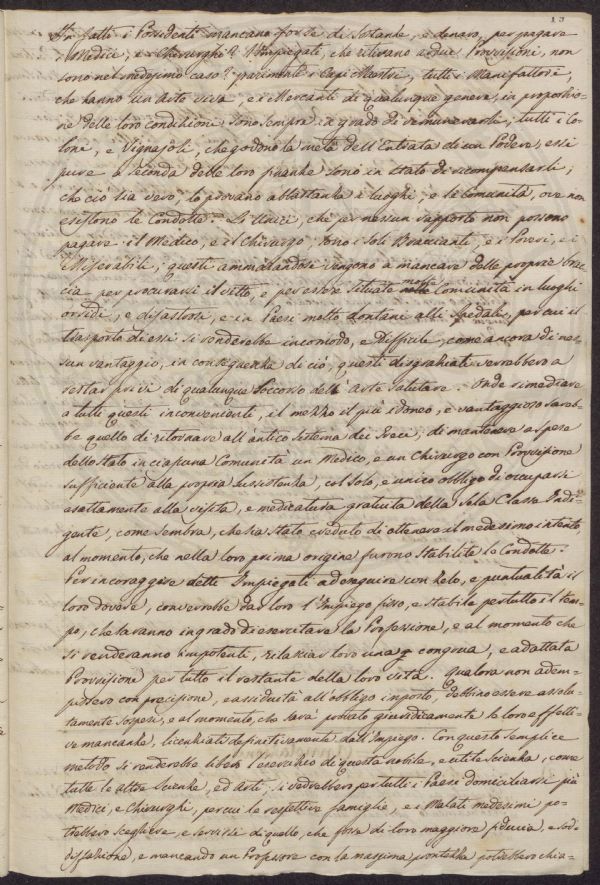 In fatti i Possidenti mancano forse di Sostanze, e denaro, per pagare
i Medici, e i Chirurghi? gl'Impiegati, che ritirano ardue Provvisioni, non
sono nel medesimo caso? parimente i Capi Maestri, tutti i Manifattori,
che hanno un'Arte viva, e i Mercanti di qualunque genere, in proporzio-
ne delle loro condizioni sono sempre in grado di remunerarli; tutti i Co-
loni, e Vignajoli, che godono la metà dell'Entrata di un Podere, essi
pure a seconda delle loro finanze sono in stato di ricompensarli;
che ciò sia vero, lo provano abbastanza i luoghi, e le Comunità, ove non
esistono le Condotte. Li Unici, che per nessun rapporto non possono
pagare il Medico, e il Chirurgo, sono i soli Braccianti, e i Poveri, e i
Miserabili; questi ammalandosi vengono a mancare delle proprie brac-
cia per procurarsi il vitto, e per essere situate molte comunità in luoghi
orridi, e disastrosi, e in Paesi molto lontani alli Spedali, per cui il
trasporto di essi si renderebbe incomodo, e difficile, come ancora di nes-
sun vantaggio, in conseguenza di ciò, questi disgraziati verrebbero a
restar privi di qualunque soccorso dell'Arte salutare. Onde rimediare
a tutti questi inconvenienti, il mezzo il più idoneo, e vantaggioso sareb-
be quello di ritornare all'antico sistema dei Greci; di mantenere a spese
dello Stato in ciascuna Comunità un Medico, e un Chirurgo con Provvisione
sufficiente alla propria sussistenza, col solo, e unico obbligo di occuparsi
esattamente alla visita, e medicatura gratuita della sola Classe Indi-
gente, come sembra, che sia stato creduto di ottenere il medesimo intento,
al momento, che nella loro prima origine furono stabilite le Condotte.
Per incoraggire detti Impiegati ad eseguire con zelo, e puntualità il
loro dovere, converrebbe dar loro l'Impiego fisso, e stabile per tutto il tem-
po, che saranno in grado di esercitare la Professione, e al momento che
si renderanno impotenti, rilasciar loro una congrua, e adattata
Provvisione per tutto il restante della loro vita. Qualora non adem-
pissero con precisione, e assiduità all'obbligo imposto, debbino essere assolu-
tamente sospesi, e al momento, che sarà provato giuridicamente le loro effetti-
ve mancanze, licenziati definitivamente dall'Impiego. Con questo semplice
metodo si renderebbe libero l'esercizio di questa nobile, e utile Scienza, come
tutte le altre Scienze, ed Arti, si vedrebbero per tutti i Paesi domiciliarsi più
Medici, e Chirurghi, per cui le respettive famiglie, e i Malati medesimi po-
trebbero scegliere, e servirsi di quello, che fosse di loro maggiore fiducia, e sod-
disfazione, e mancando un Professore con la massima prontezza potrebbero chia-